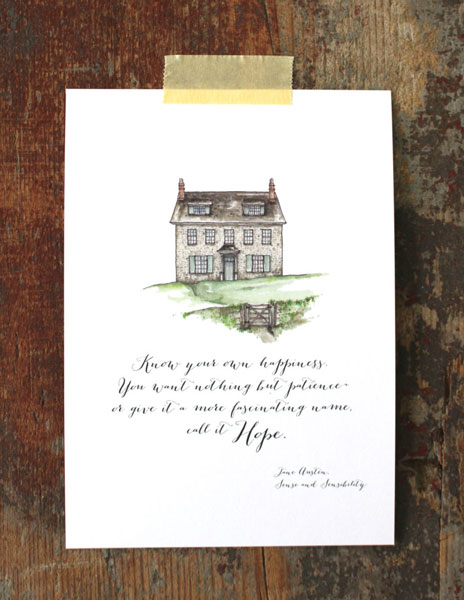 Know your own happiness.
You want nothing but patience-
or give it a more fascinating name,
call it Hope.
Jane Austen,
Sense and Sensibility